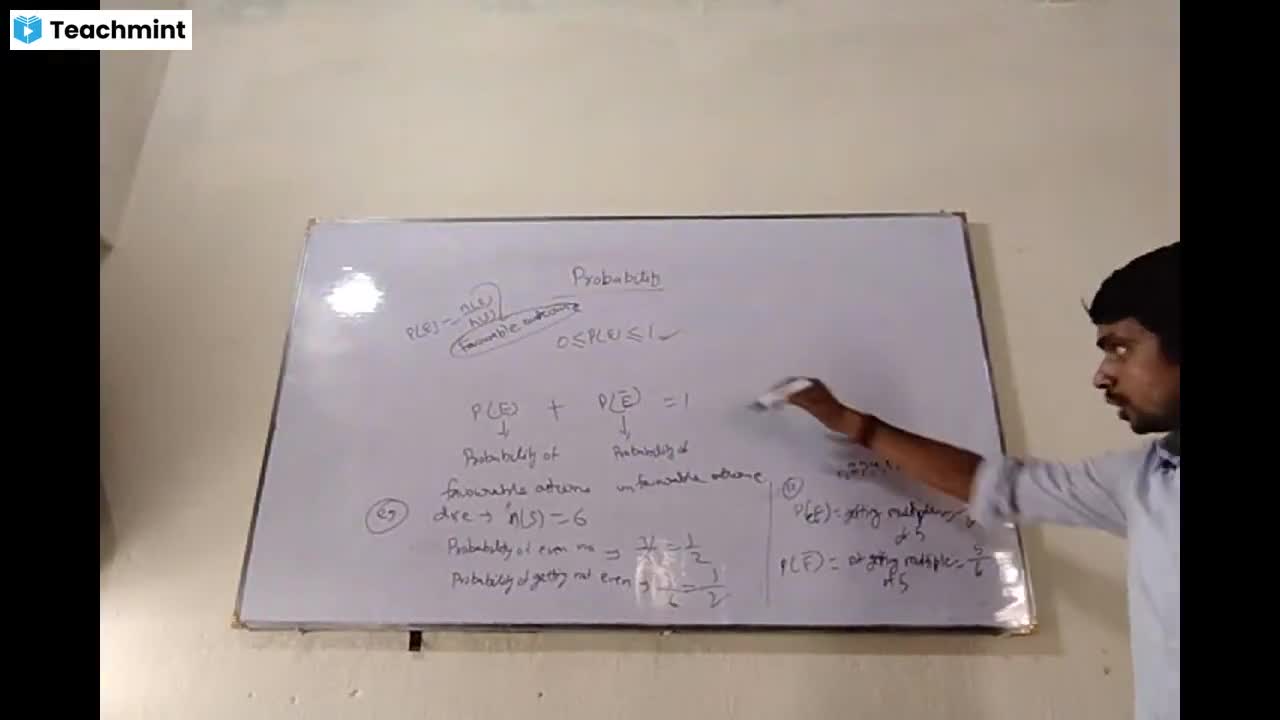 Teachmint
Probability
P(E) = n(E)/n(S)
Favourable outcome
0 ≤ P(E) ≤ 1 ✓
P(E) + P(Ē) = 1
↓ ↓
Probability of Probability of
favourable outcome unfavourable outcome
eg dice → n(S) = 6
Probability of even no → = 1/2
Probability of getting not even → /6 = 1/2
P(E) = getting multiple
of 5
P(Ē) = not getting multiple = 5/6
of 5